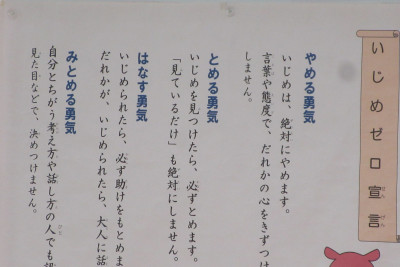 いじめゼロ宣言
やめる勇気
いじめは、絶対にやめます。
言葉や態度で、だれかの心をきずつけ
しません。
とめる勇気
いじめを見つけたら、必ずとめます。
「見ているだけ」も絶対にしません。
はなす勇気
いじめられたら、必ず助けをもとめま
だれかが、いじめられたら、大人に話
みとめる勇気
自分とちがう考え方や話し方の人でも認
見た目などで、決めつけません。